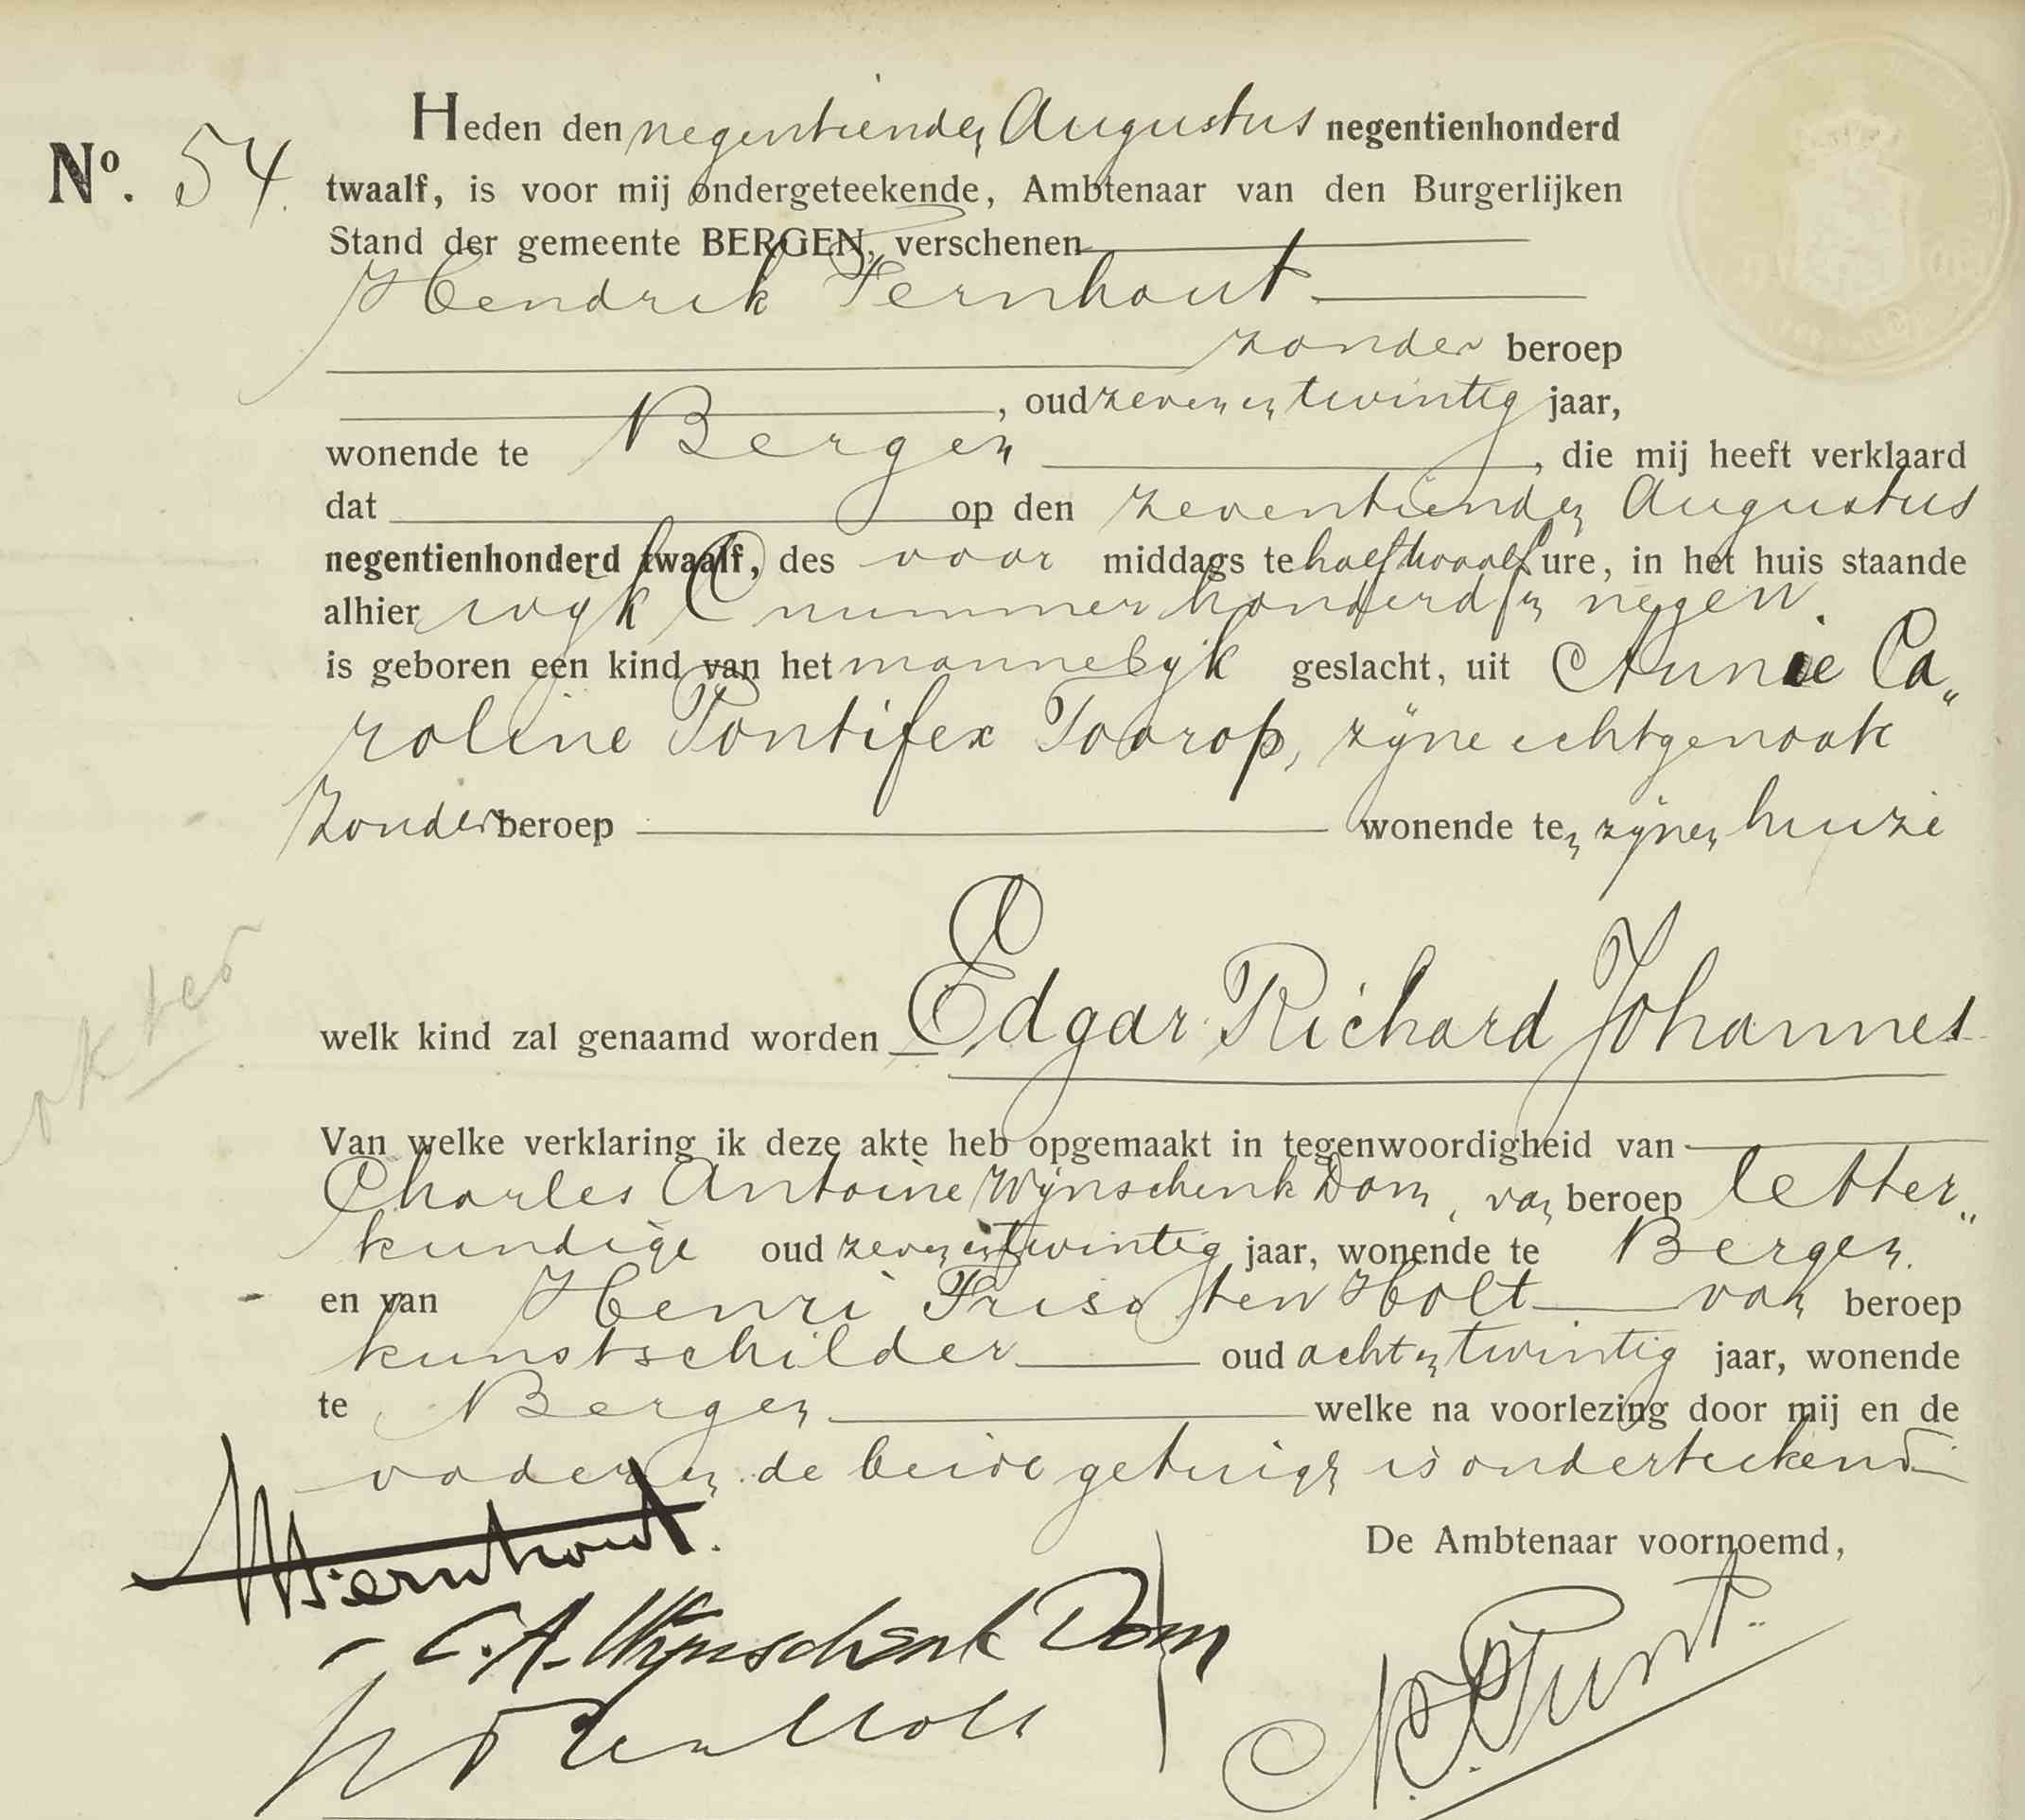 Heden den negentienden Augustus negentienhonderd
No. 54. twaalf, is voor mij ondergeteekende, Ambtenaar van den Burgerlijken
Stand der gemeente BERGEN, verschenen
Hendrik Fernhout
zonder beroep
, oud zeven en twintig jaar,
wonende te Bergen, die mij heeft verklaard
dat op den zeventienden Augustus
negentienhonderd twaalf, des voor middags te half twaalf ure, in het huis staande
alhier wyk C nummer honderd en negen.
is geboren een kind van het mannelyk geslacht, uit Annie Ca„
roline Pontifex Toorop, zyne echtgenoote
zonder beroep wonende ten zynen huize
welk kind zal genaamd worden Edgar Richard Johannes
Van welke verklaring ik deze akte heb opgemaakt in tegenwoordigheid van
Charles Antoine Wynschenk Dom, van beroep letter„
kundige oud zeven en twintig jaar, wonende te Bergen.
en van Henri Friso ten Holt van beroep
kunstschilder oud acht en twintig jaar, wonende
te Bergen welke na voorlezing door mij en de
vader en de beide getuigen is onderteekend
De Ambtenaar voornoemd,
HFernhout.
C. A. Wynschenk Dom
HF ten Holt